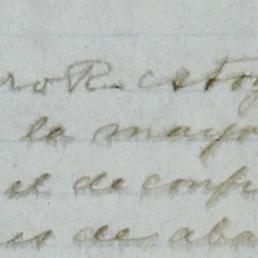 ro R. esto
la mayo
el de conf
es de aba